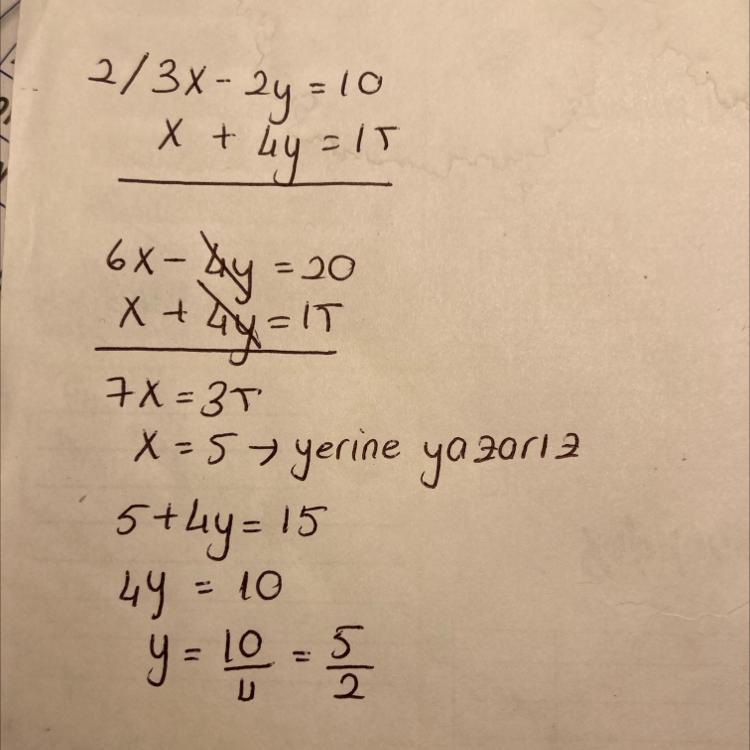 2/3x - 2y = 10
x + 4y = 15
6x - 4y = 20
x + 4y = 15
7x = 35
x = 5 → yerine yazarız
5 + 4y = 15
4y = 10
y = 10/4 = 5/2